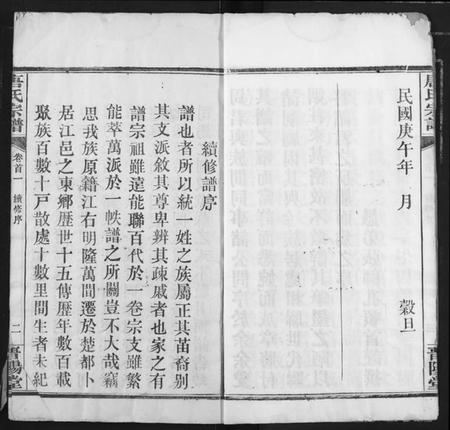 民國庚午年　月　穀旦
續修譜序
譜也者所以統一姓之族屬正其苗裔別
其支派敘其尊卑辨其疎戚者也家之有
譜宗祖雖遠能聯百代於一卷宗支雖繁
能萃萬派於一帙譜之所關豈不大哉竊
思我族原籍江右明隆萬間遷於楚都卜
居江邑之東鄉歷世十五傳歷年數百載
聚族百數十戶散處十數里間生者未紀
唐氏宗譜
卷首一
續修序
二
晉陽堂